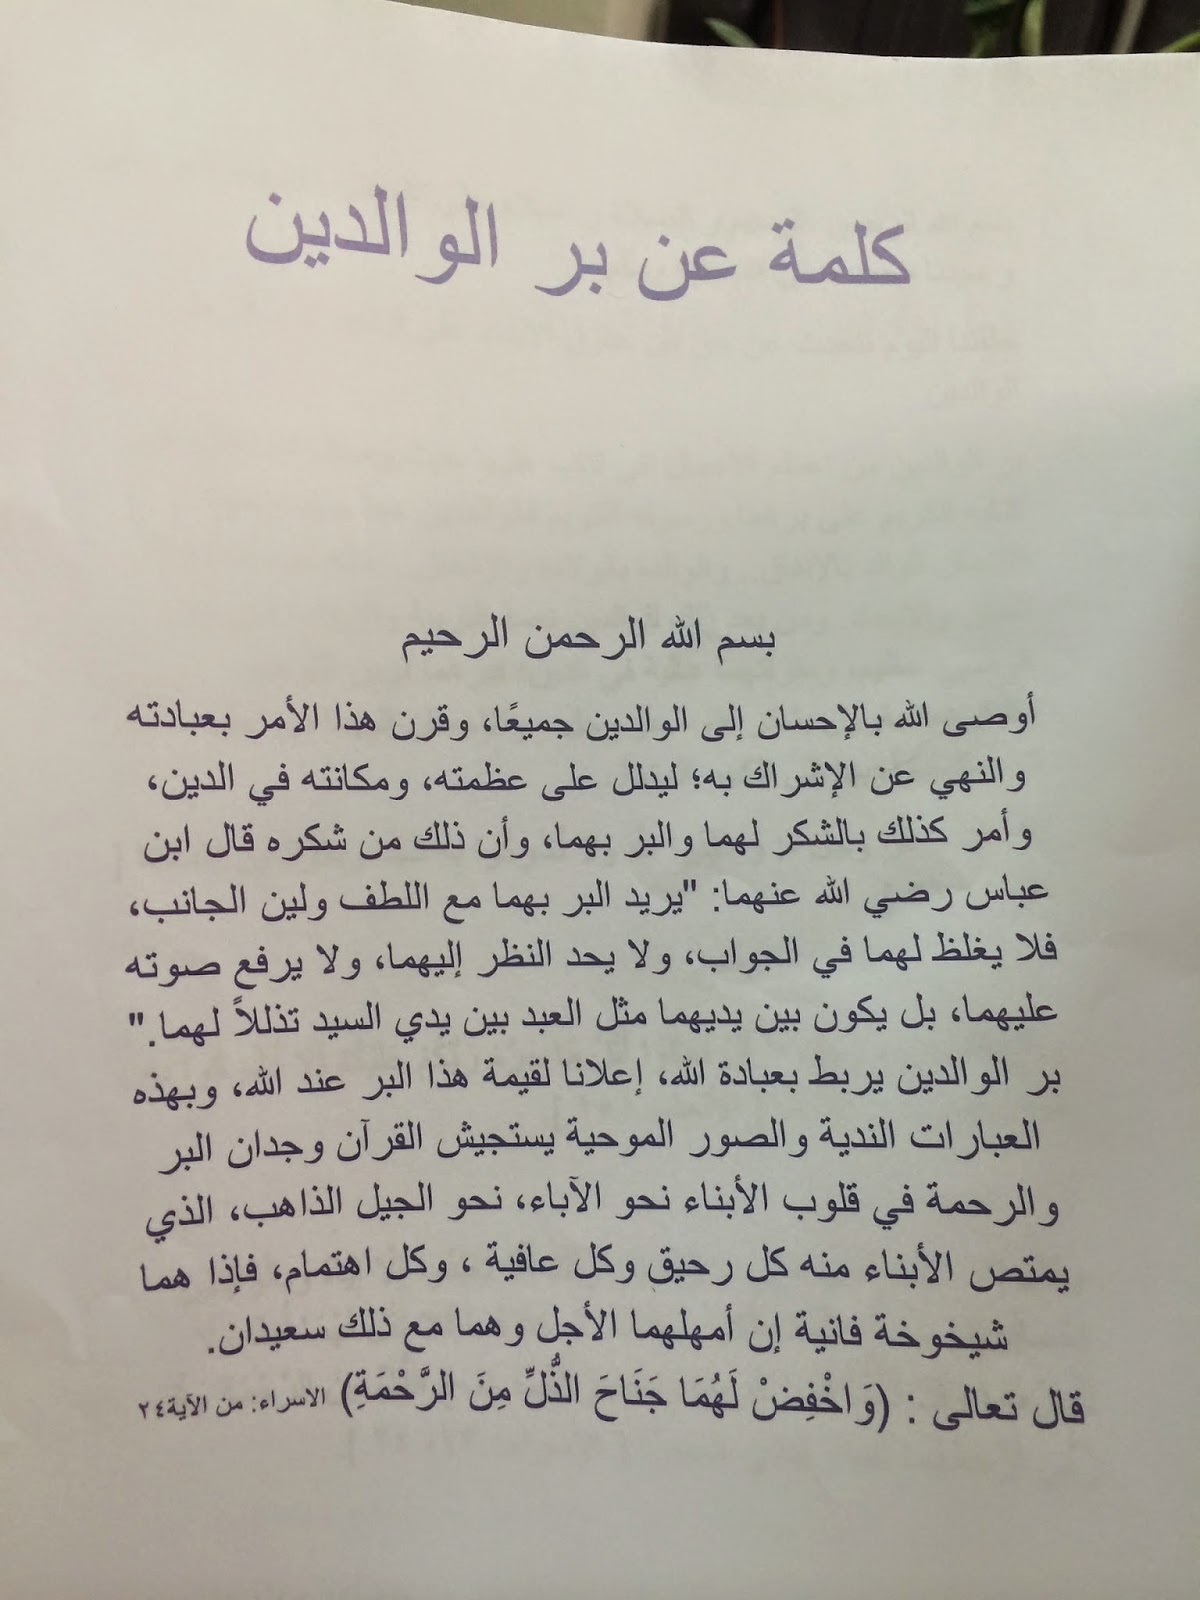 كلمة عن بر الوالدين
بسم الله الرحمن الرحيم
أوصى الله بالإحسان إلى الوالدين جميعًا، وقرن هذا الأمر بعبادته
والنهي عن الإشراك به؛ ليدلل على عظمته، ومكانته في الدين،
وأمر كذلك بالشكر لهما والبر بهما، وأن ذلك من شكره قال ابن
عباس رضي الله عنهما: "يريد البر بهما مع اللطف ولين الجانب،
فلا يغلظ لهما في الجواب، ولا يحد النظر إليهما، ولا يرفع صوته
عليهما، بل يكون بين يديهما مثل العبد بين يدي السيد تذللاً لهما."
بر الوالدين يربط بعبادة الله، إعلانا لقيمة هذا البر عند الله، وبهذه
العبارات الندية والصور الموحية يستجيش القرآن وجدان البر
والرحمة في قلوب الأبناء نحو الآباء، نحو الجيل الذاهب، الذي
يمتص الأبناء منه كل رحيق وكل عافية ، وكل اهتمام، فإذا هما
شيخوخة فانية إن أمهلهما الأجل وهما مع ذلك سعيدان.
قال تعالى : (وَاخْفِضْ لَهُمَا جَنَاحَ الذُّلِّ مِنَ الرَّحْمَةِ) الاسراء: من الآية٢٤